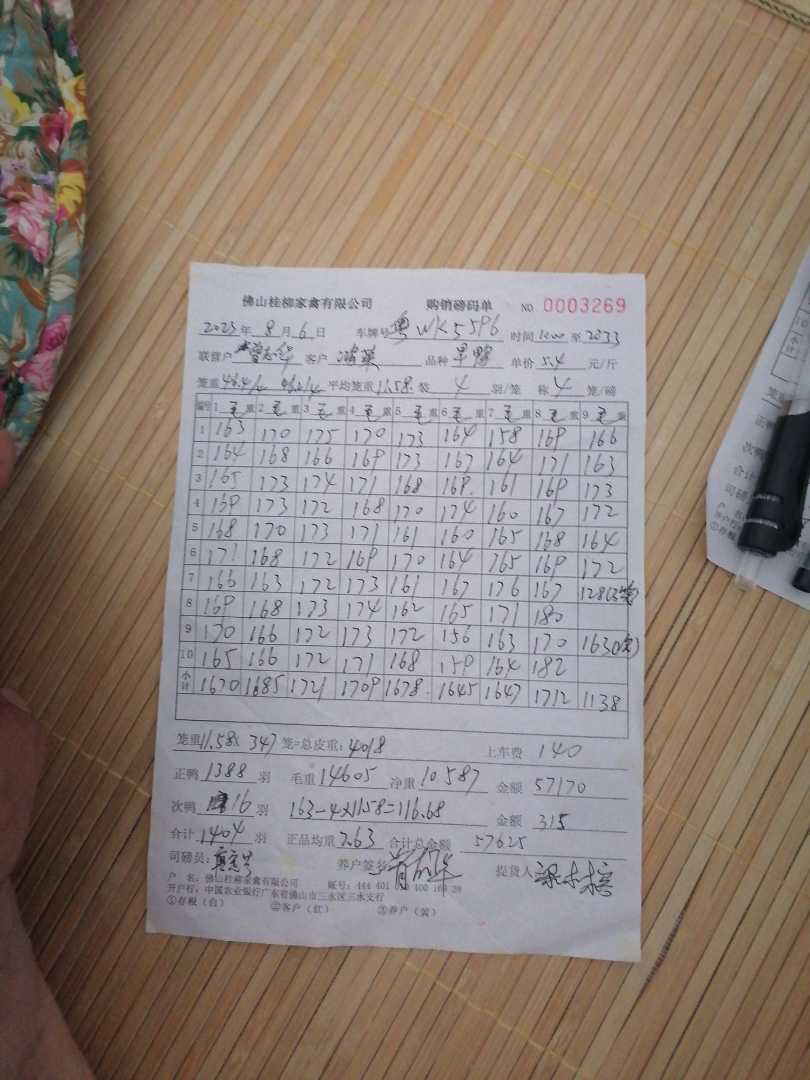 佛山桂柳家禽有限公司 购销磅码单 NO 0003269
2023年 8月 6日 车牌号 粤WK5596 时间 至 2033
联营户 客户 品种 单价 5.4 元/斤
笼重 平均笼重 11.58 装 4 羽/笼 称 4 笼/磅
编号 1 毛重 2 毛重 3 毛重 4 毛重 5 毛重 6 毛重 7 毛重 8 毛重 9 毛重
1 163 170 175 170 173 164 158 169 166
2 164 168 166 169 173 167 164 171 163
3 165 173 174 171 168 169 161 169 173
4 169 173 172 168 170 174 160 167 172
5 168 170 173 171 161 160 165 168 164
6 171 168 172 169 170 164 165 169 172
7 166 163 172 173 161 167 176 167 128(3笼)
8 169 168 173 174 162 165 171 180
9 170 166 172 173 172 156 163 170 163(次)
10 165 166 172 171 168 159 164 182
小计 1670 1685 1721 1709 1678 1645 1647 1712 1138
笼重 11.58x 347 笼=总皮重: 4018 上车费 140
正鸭 1388 羽 毛重 14605 净重 10587 金额 57170
次鸭 16 羽 163-4x11.58=116.68 金额 315
合计 1404 羽 正品均重 7.63 合计总金额 57625
司磅员: 养户签名 提货人
户 名: 佛山桂柳家禽有限公司 账号: 444 401
开户行: 中国农业银行广东省佛山市三水区三水支行
①存根(白) ②客户(红) ③养户(黄)